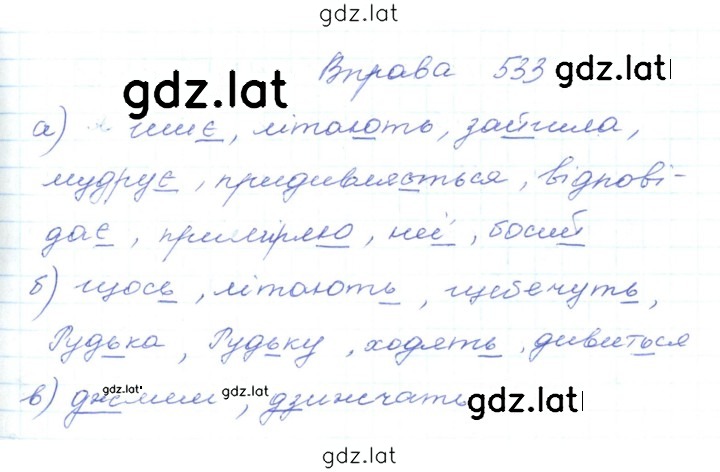 gdz.lat
Вправа 533 gdz.lat
gdz.lat
а) шиє, літають, зайшла,
мудрує, придивляється, відпові-
дає, приміряю, неї, босий
б) щось, літають, щебечуть,
Рудька, Рудьку, ходять, дивиться
в) джмши, дзижчать
gdz.lat gdz.lat gdz.lat
gdz.lat